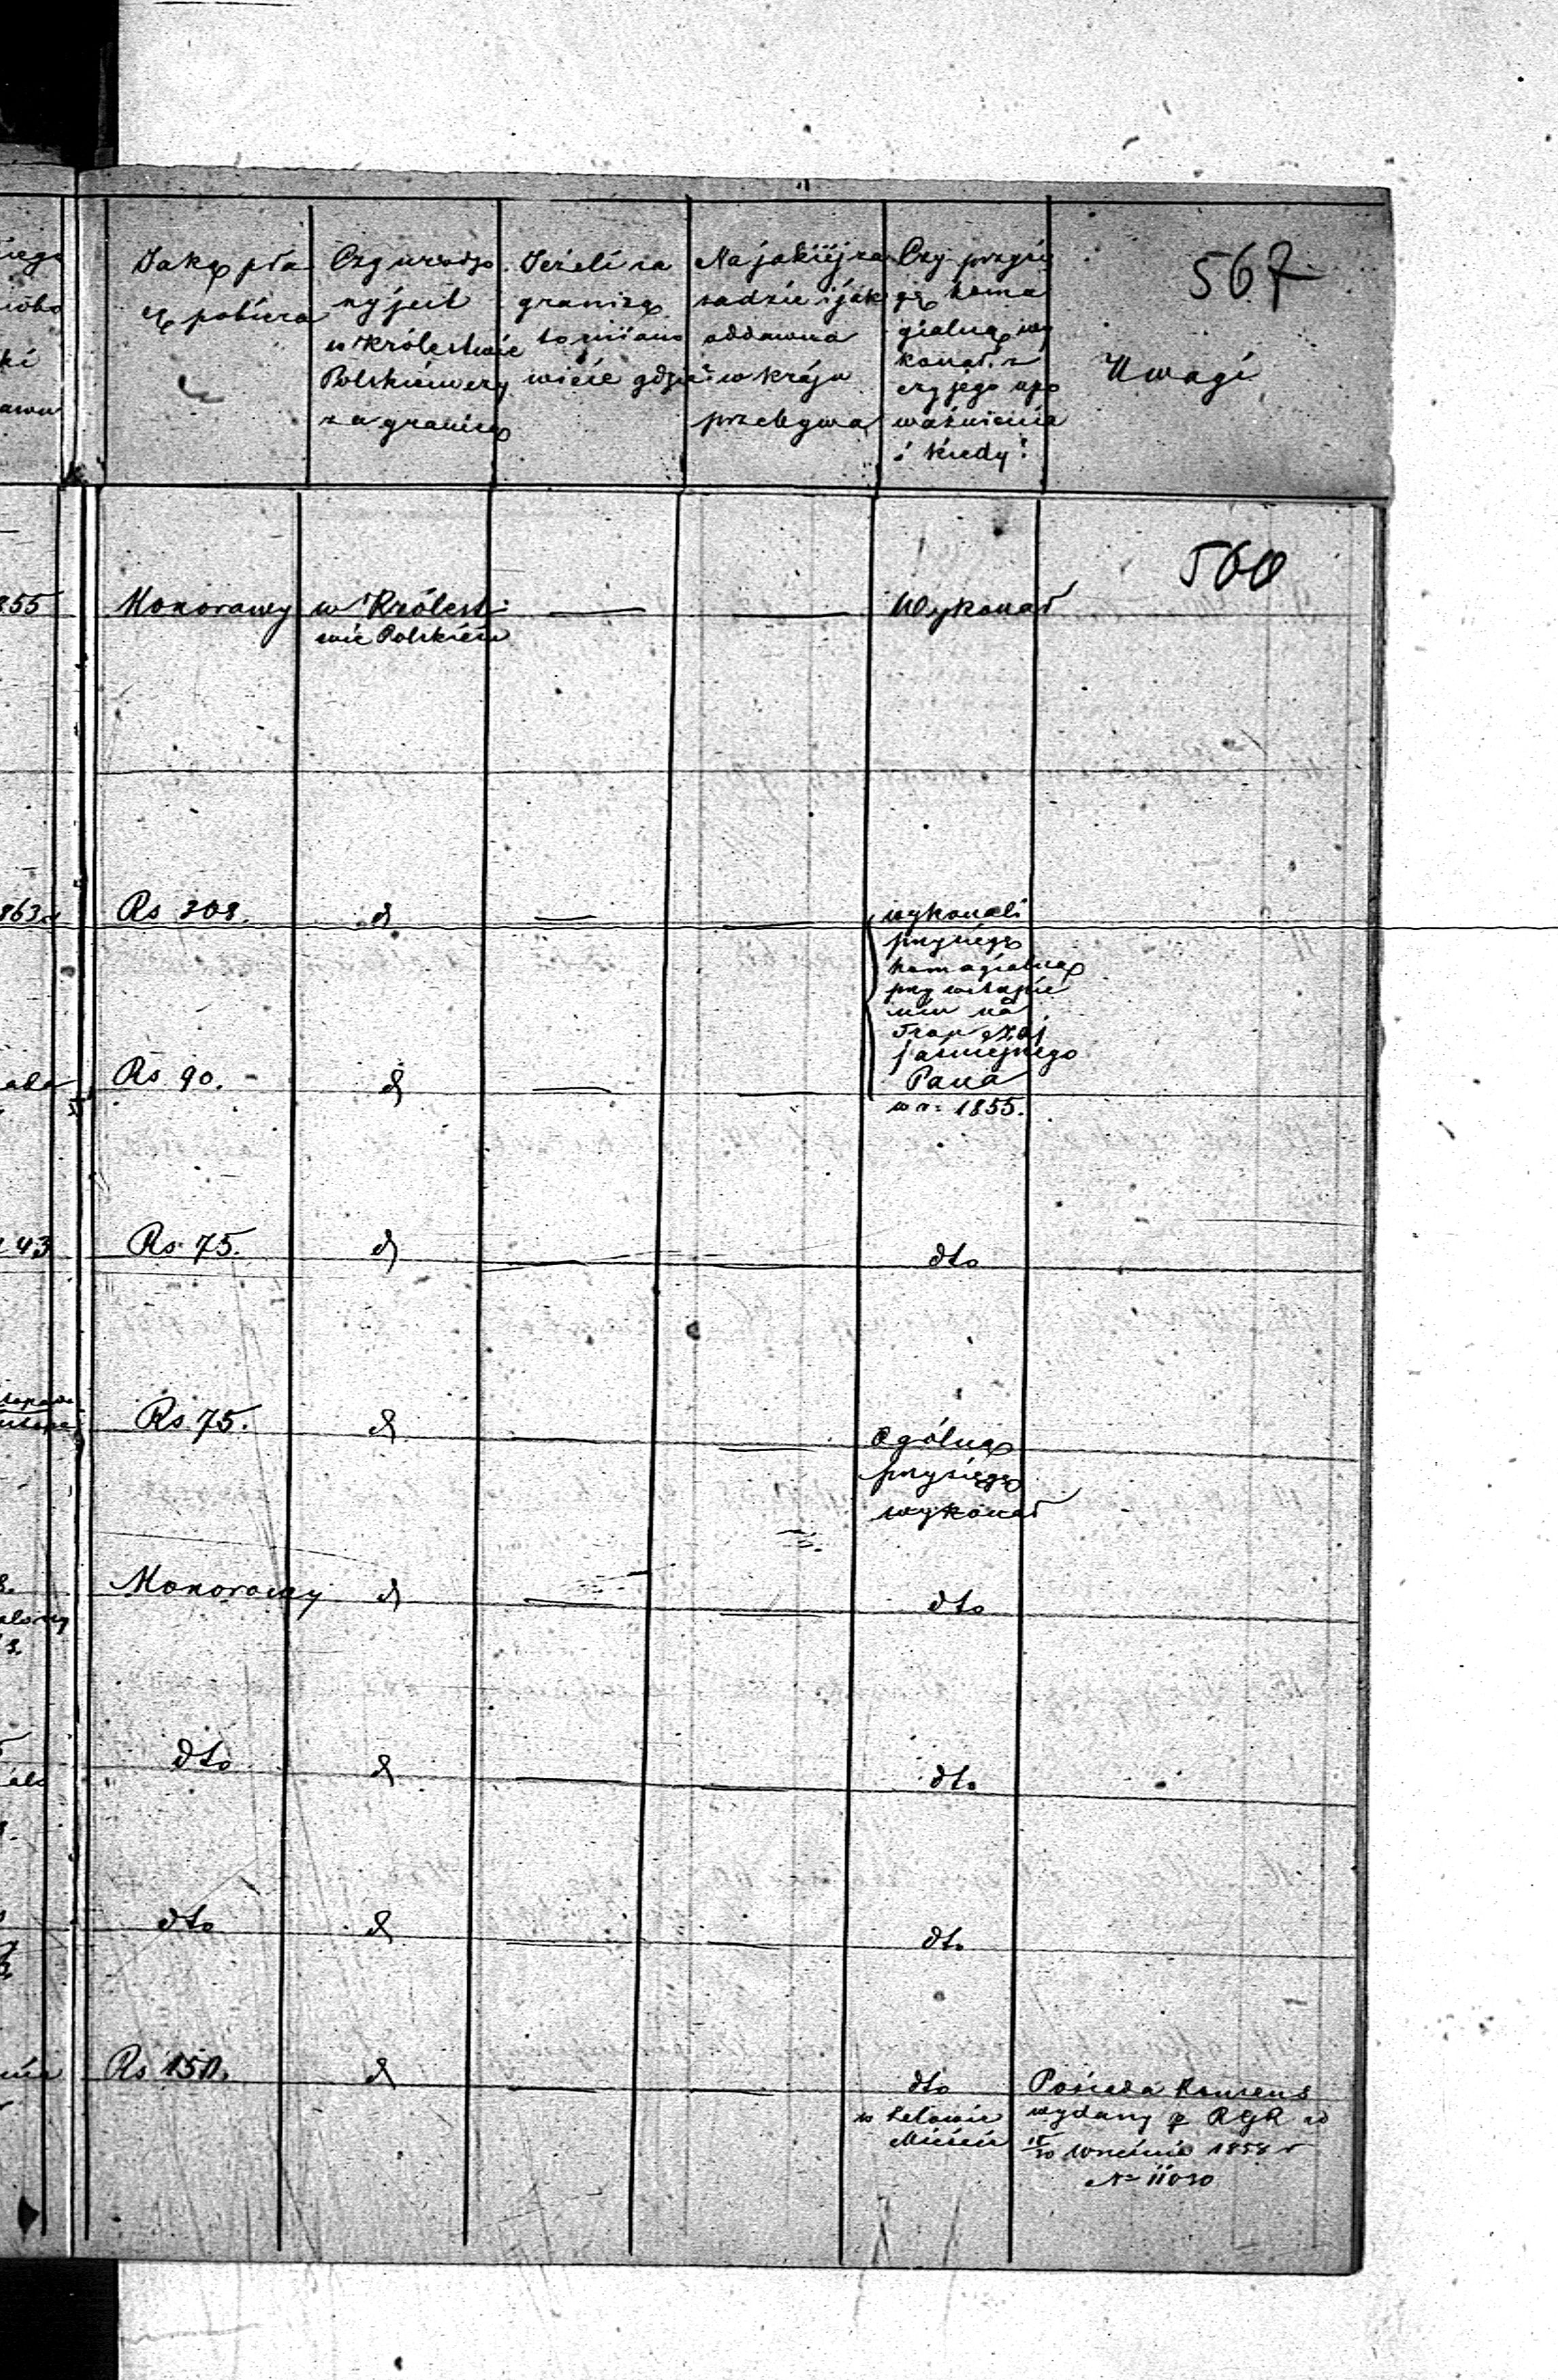 Jaką pła
cę pobiera
Czy urodzo
ny jest
w Królestwie
Polskiém czy
za granicą
Jeżeli za
granicą
to mianο
wicie gdzie?
Na jakiéj za
sadzie i jak
oddawna
w kraju
przebywa
Czy przysię
gę homa
gialną wy
konał. z
czyjego upo
ważnienia
i kiedy?
567
Uwagi
560
855
Honorowy
w Królest
wie Polskiém
Wykonał
863
Rs 308.
d
wykonali
przysięgę
homagialną
przy wstąpie
niu na
Tron Naj
jaśniejszego
Pana
w r. 1855.
Rs 90.
d
43
Rs 75.
d
dto
Rs 75.
d
Ogólną
przysięgę
wykonał
Honorowy
d
dto
dto
d
dto
dto
d
dto
Rs 150.
d
dto
w Lelowie
Mieście
Posiada Konsens
wydany p RGR d
18/30 Września 1858 r
№ 11030